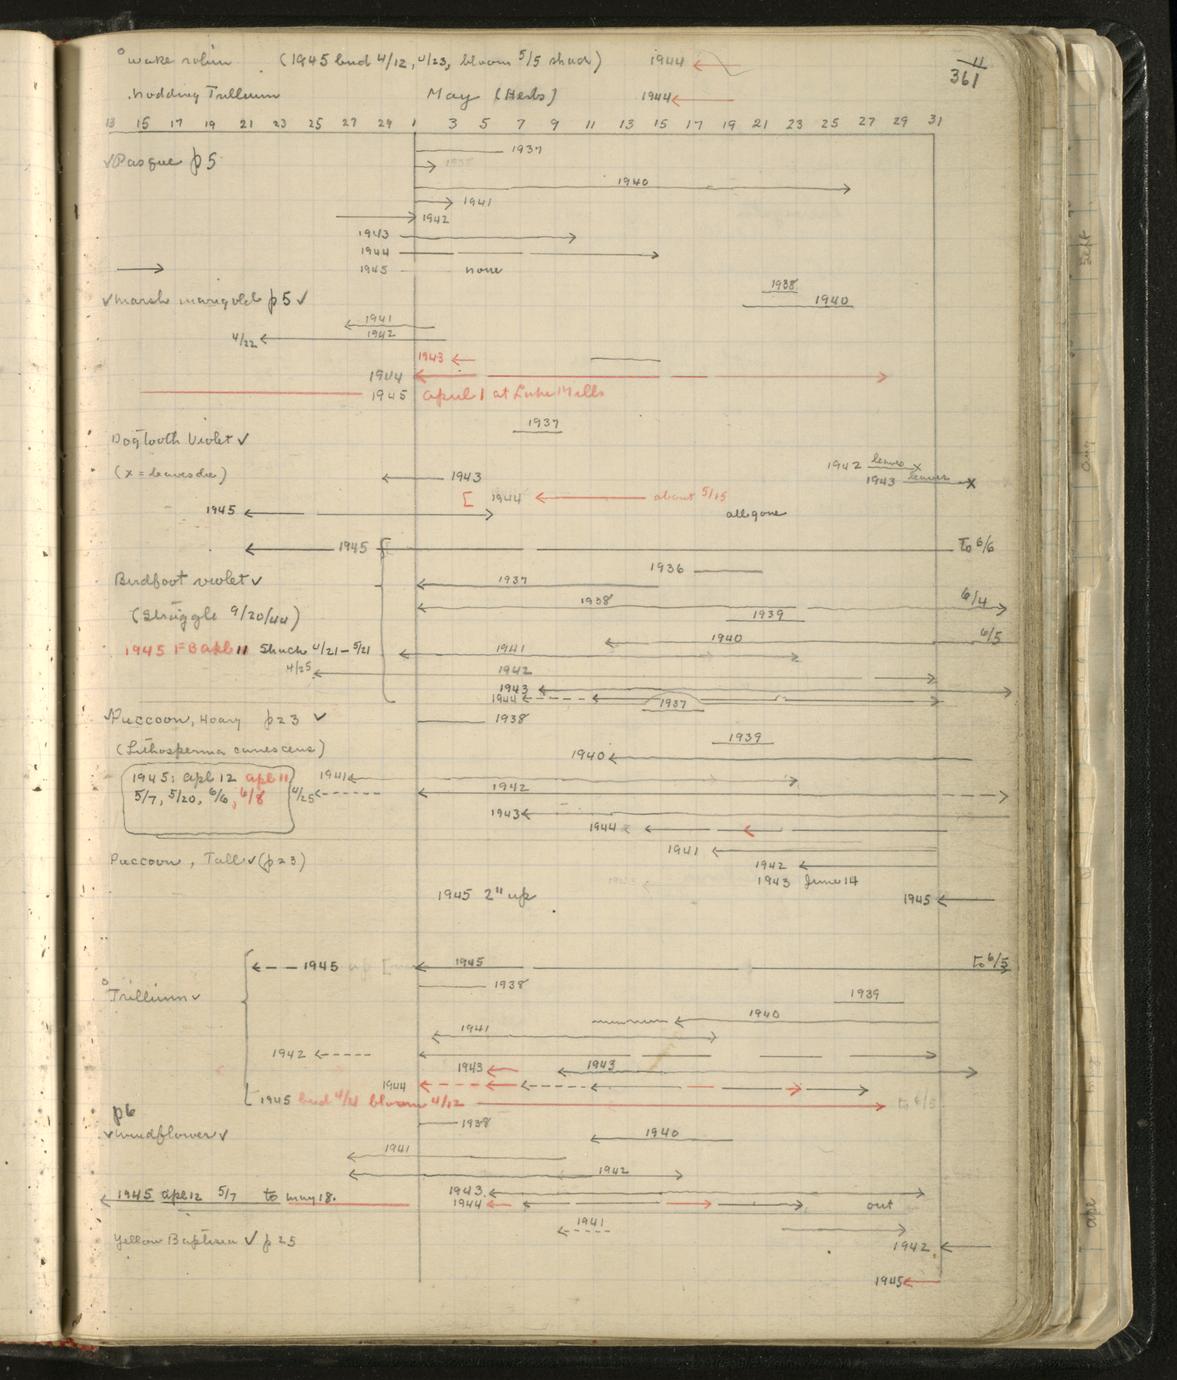 wake robin (1945 bud 4/12, 4/23, bloom 5/5 shad) 1944
11
361
nodding Trillium May (Herbs) 1944
13 15 17 19 21 23 25 27 29 1 3 5 7 9 11 13 15 17 19 21 23 25 27 29 31
1937
✓Pasque p5
1940
1941
1942
1943
1944
1945 none
1938
✓marsh marigold p5 ✓ 1940
1941
4/22 1942
1943
1944
1945 april 1 at Lake Mills
1937
Dogtooth Violet ✓
1942 leaves x
(x = leaves die) 1943 1943 leaves x
[ 1944 about 5/15
1945 all gone
1945 to 6/6
1936
Birdfoot violet ✓ 1937
1938 6/4
(Struggle 9/20/44) 1939
1940 6/5
1945 FB apl 11 Shack 4/21-5/21 1941
4/25 1942
1943
1944 1937
✓Puccoon, Hoary p23 ✓ 1938
1939
(Lithosperma canescens) 1940
1945: apl 12 apl 11 1941
5/7, 5/20, 6/6, 6/8 4/25 1942
1943
1944
1941
Puccoon, Tall ✓ (p23) 1942
1943 June 14
1945 2" up 1945
1945 1945 to 6/5
1938
Trillium ✓ 1939
1940
1941
1942
1943 1943
1944
1945 bud 4/11 bloom 4/12 to 6/5
p6
1938
✓windflower ✓ 1940
1941
1942
1945 apl 12 5/7 to may 18. 1943
1944 out
1941
Yellow Baptisia ✓ p25 1942
1945
Sept
Aug
apr